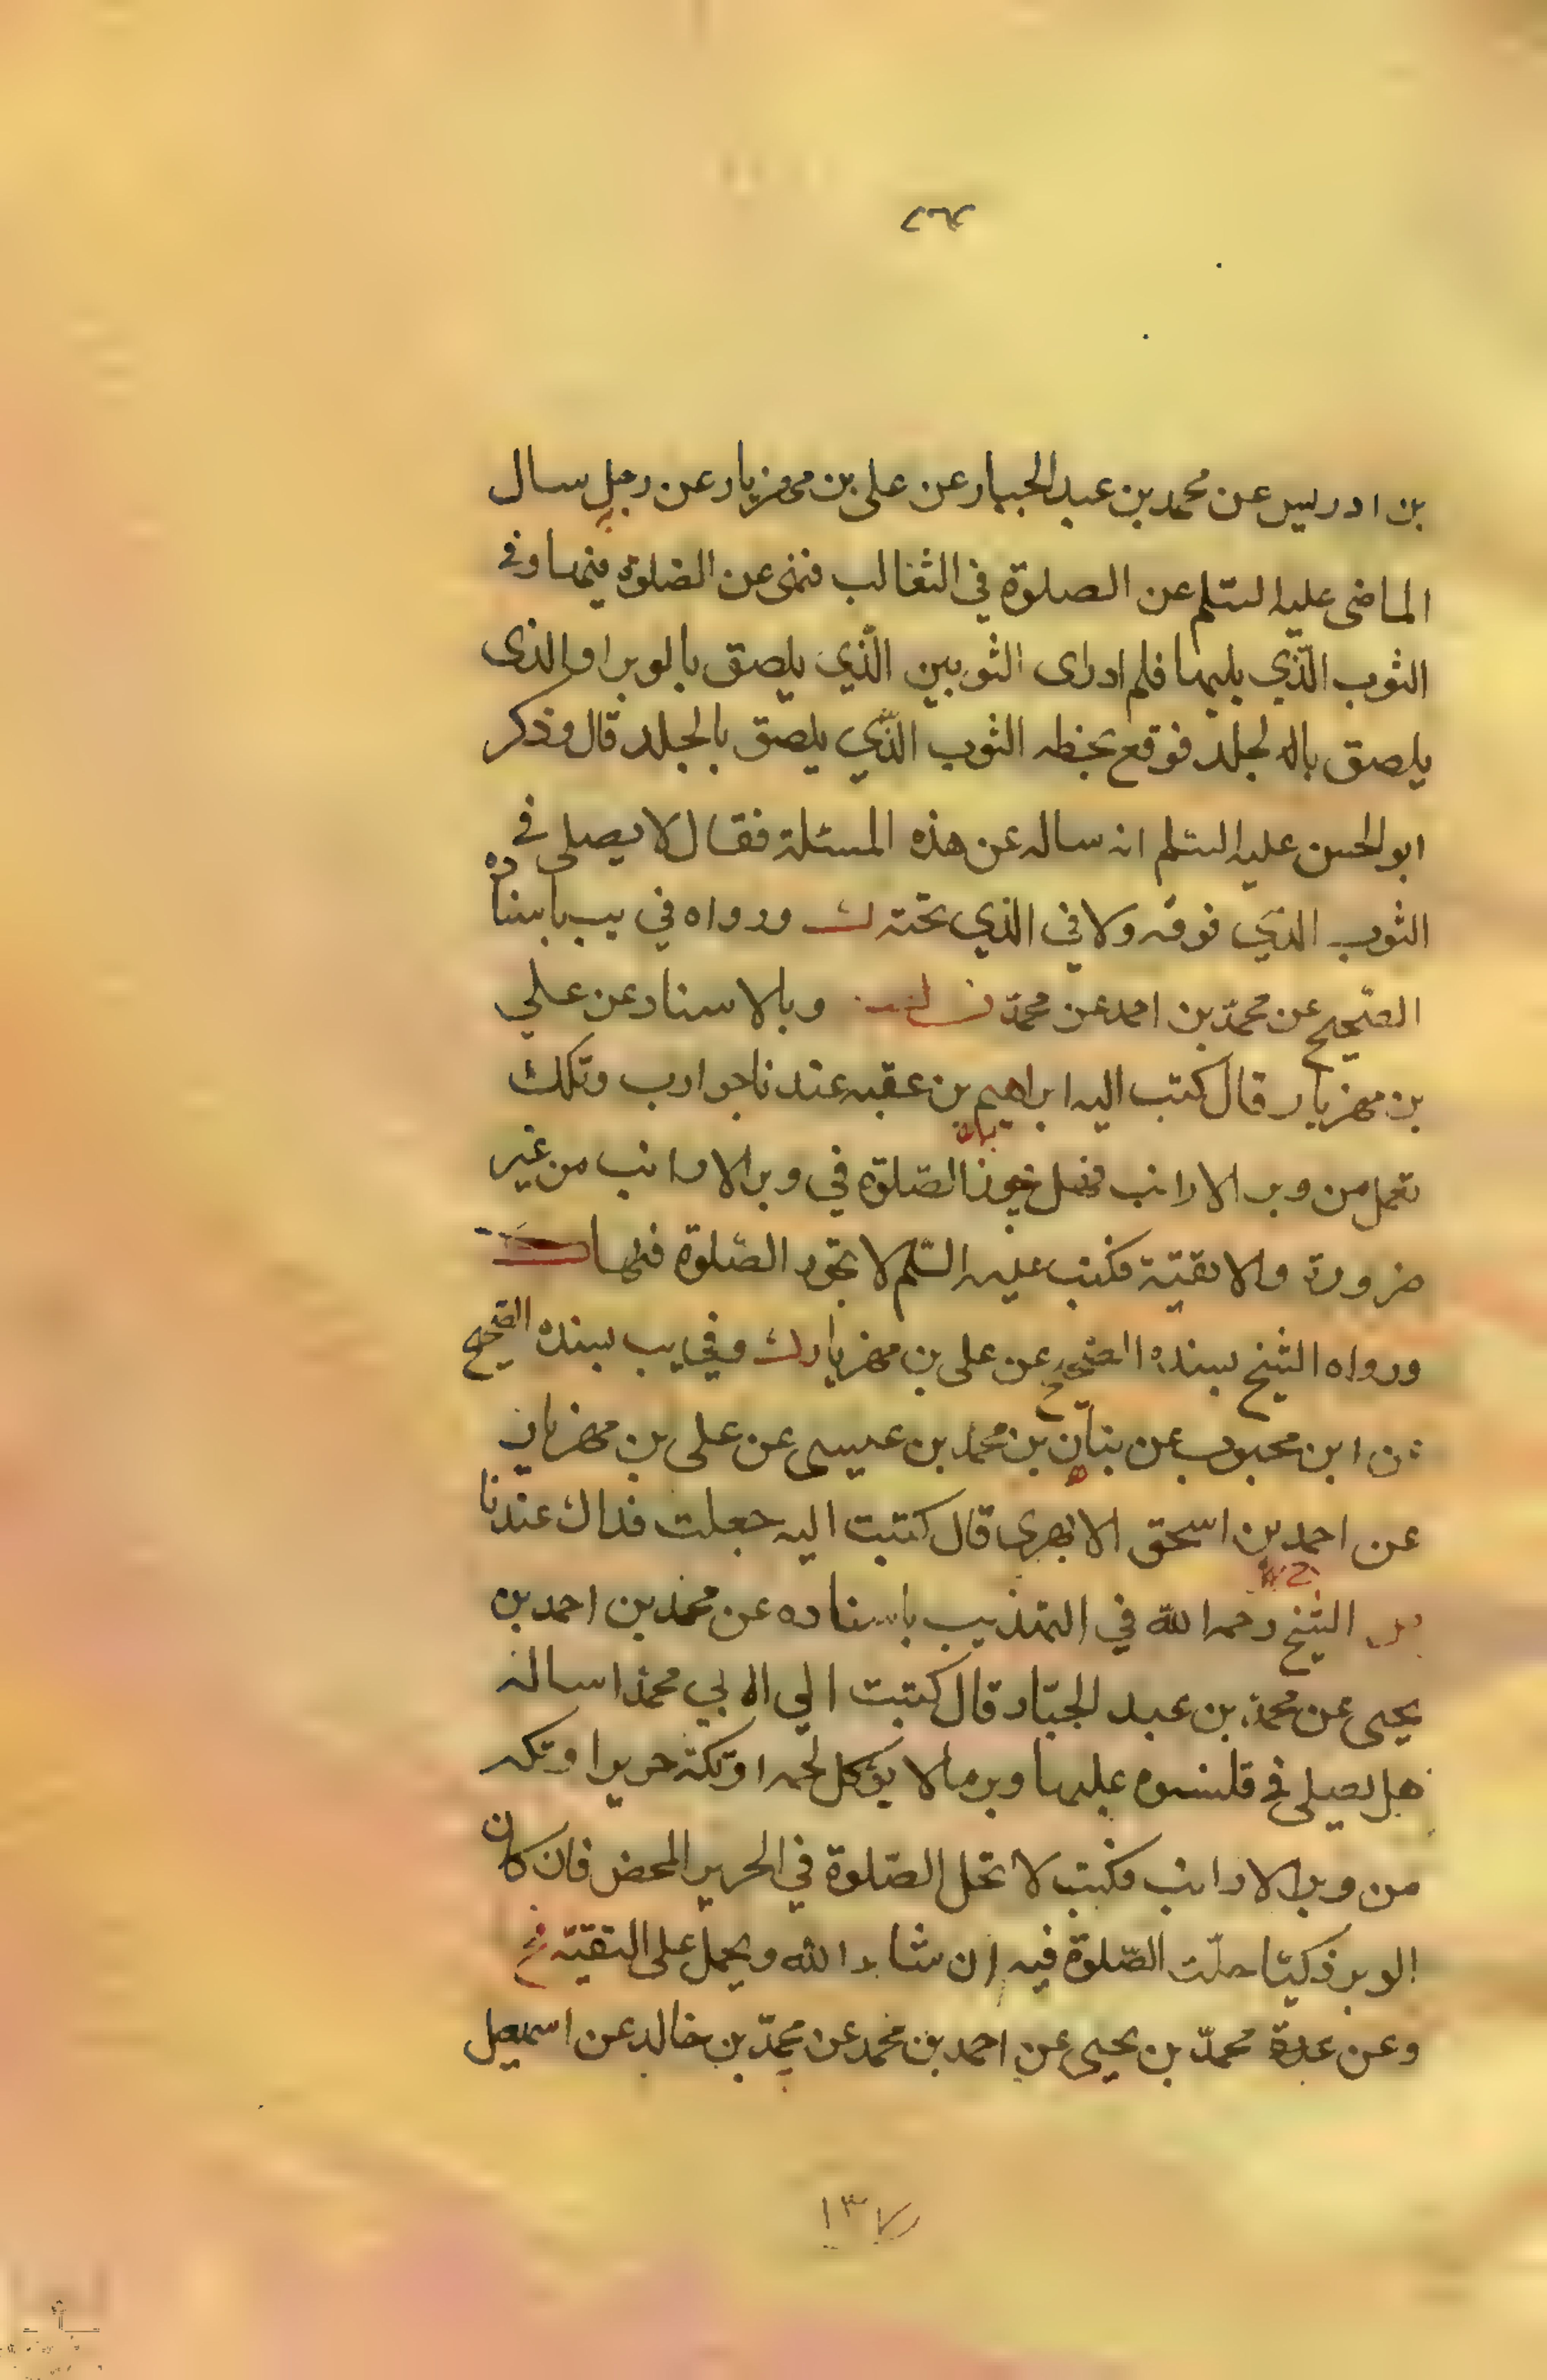 بن ادريس عن محمد بن عبد الجبار عن على بن مهزيار عن رجل سال
الماضى عليه السّلم عن الصلوة في الثعالب فنهى عن الصلوة فيها وفي
الثوب الّذي يليها فلم ادر اى الثوبين الّذي يلصق بالوبر او الذى
يلصق بالجلد فوقع بخطه الثوب الذّي يلصق بالجلد قال وذكر
ابو الحسن عليه السّلم انه ساله عن هذه المسئلة فقال لا يصلى في
الثوب الذي فوقه ولا في الذي تحته ورواه في يب باسناده
الصّحيح عن محمّد بن احمد عن محمّد وبالاسناد عن علي
بن مهزيار قال كتب اليه ابراهيم بن عقبه عندنا جوارب وتكك
تعمل من وبر الارانب فهل يجوز الصّلوة في وبر الارانب من غير
ضرورة ولا تقيّة فكتب عليه السّلم لا تجوز الصّلوة فيها
ورواه الشيخ بسنده الصّحيح عن على بن مهزيار وفي يب بسنده الصّحيح
عن ابن محبوب عن بنان بن محمد بن عيسى عن على بن مهزيار
عن احمد بن اسحق الابهرى قال كتبت اليه جعلت فداك عندنا
الشيخ رحمه الله في التهذيب باسناده عن محمد بن احمد بن
يحيى عن محمد بن عبد الجبّار قال كتبت الي ابي محمد اساله
هل يصلى في قلنسوه عليها وبر ما لا يؤكل لحمه او تكة حرير او تكه
من وبر الارانب فكتب لا تحل الصّلوة في الحرير المحض فان كان
الوبر ذكيّا حلّت الصّلوة فيه ان شاء الله ويحمل على التقيّة
وعن عدة محمّد بن يحيى عن احمد بن محمد عن محمّد بن خالد عن اسمعيل
١٣٧